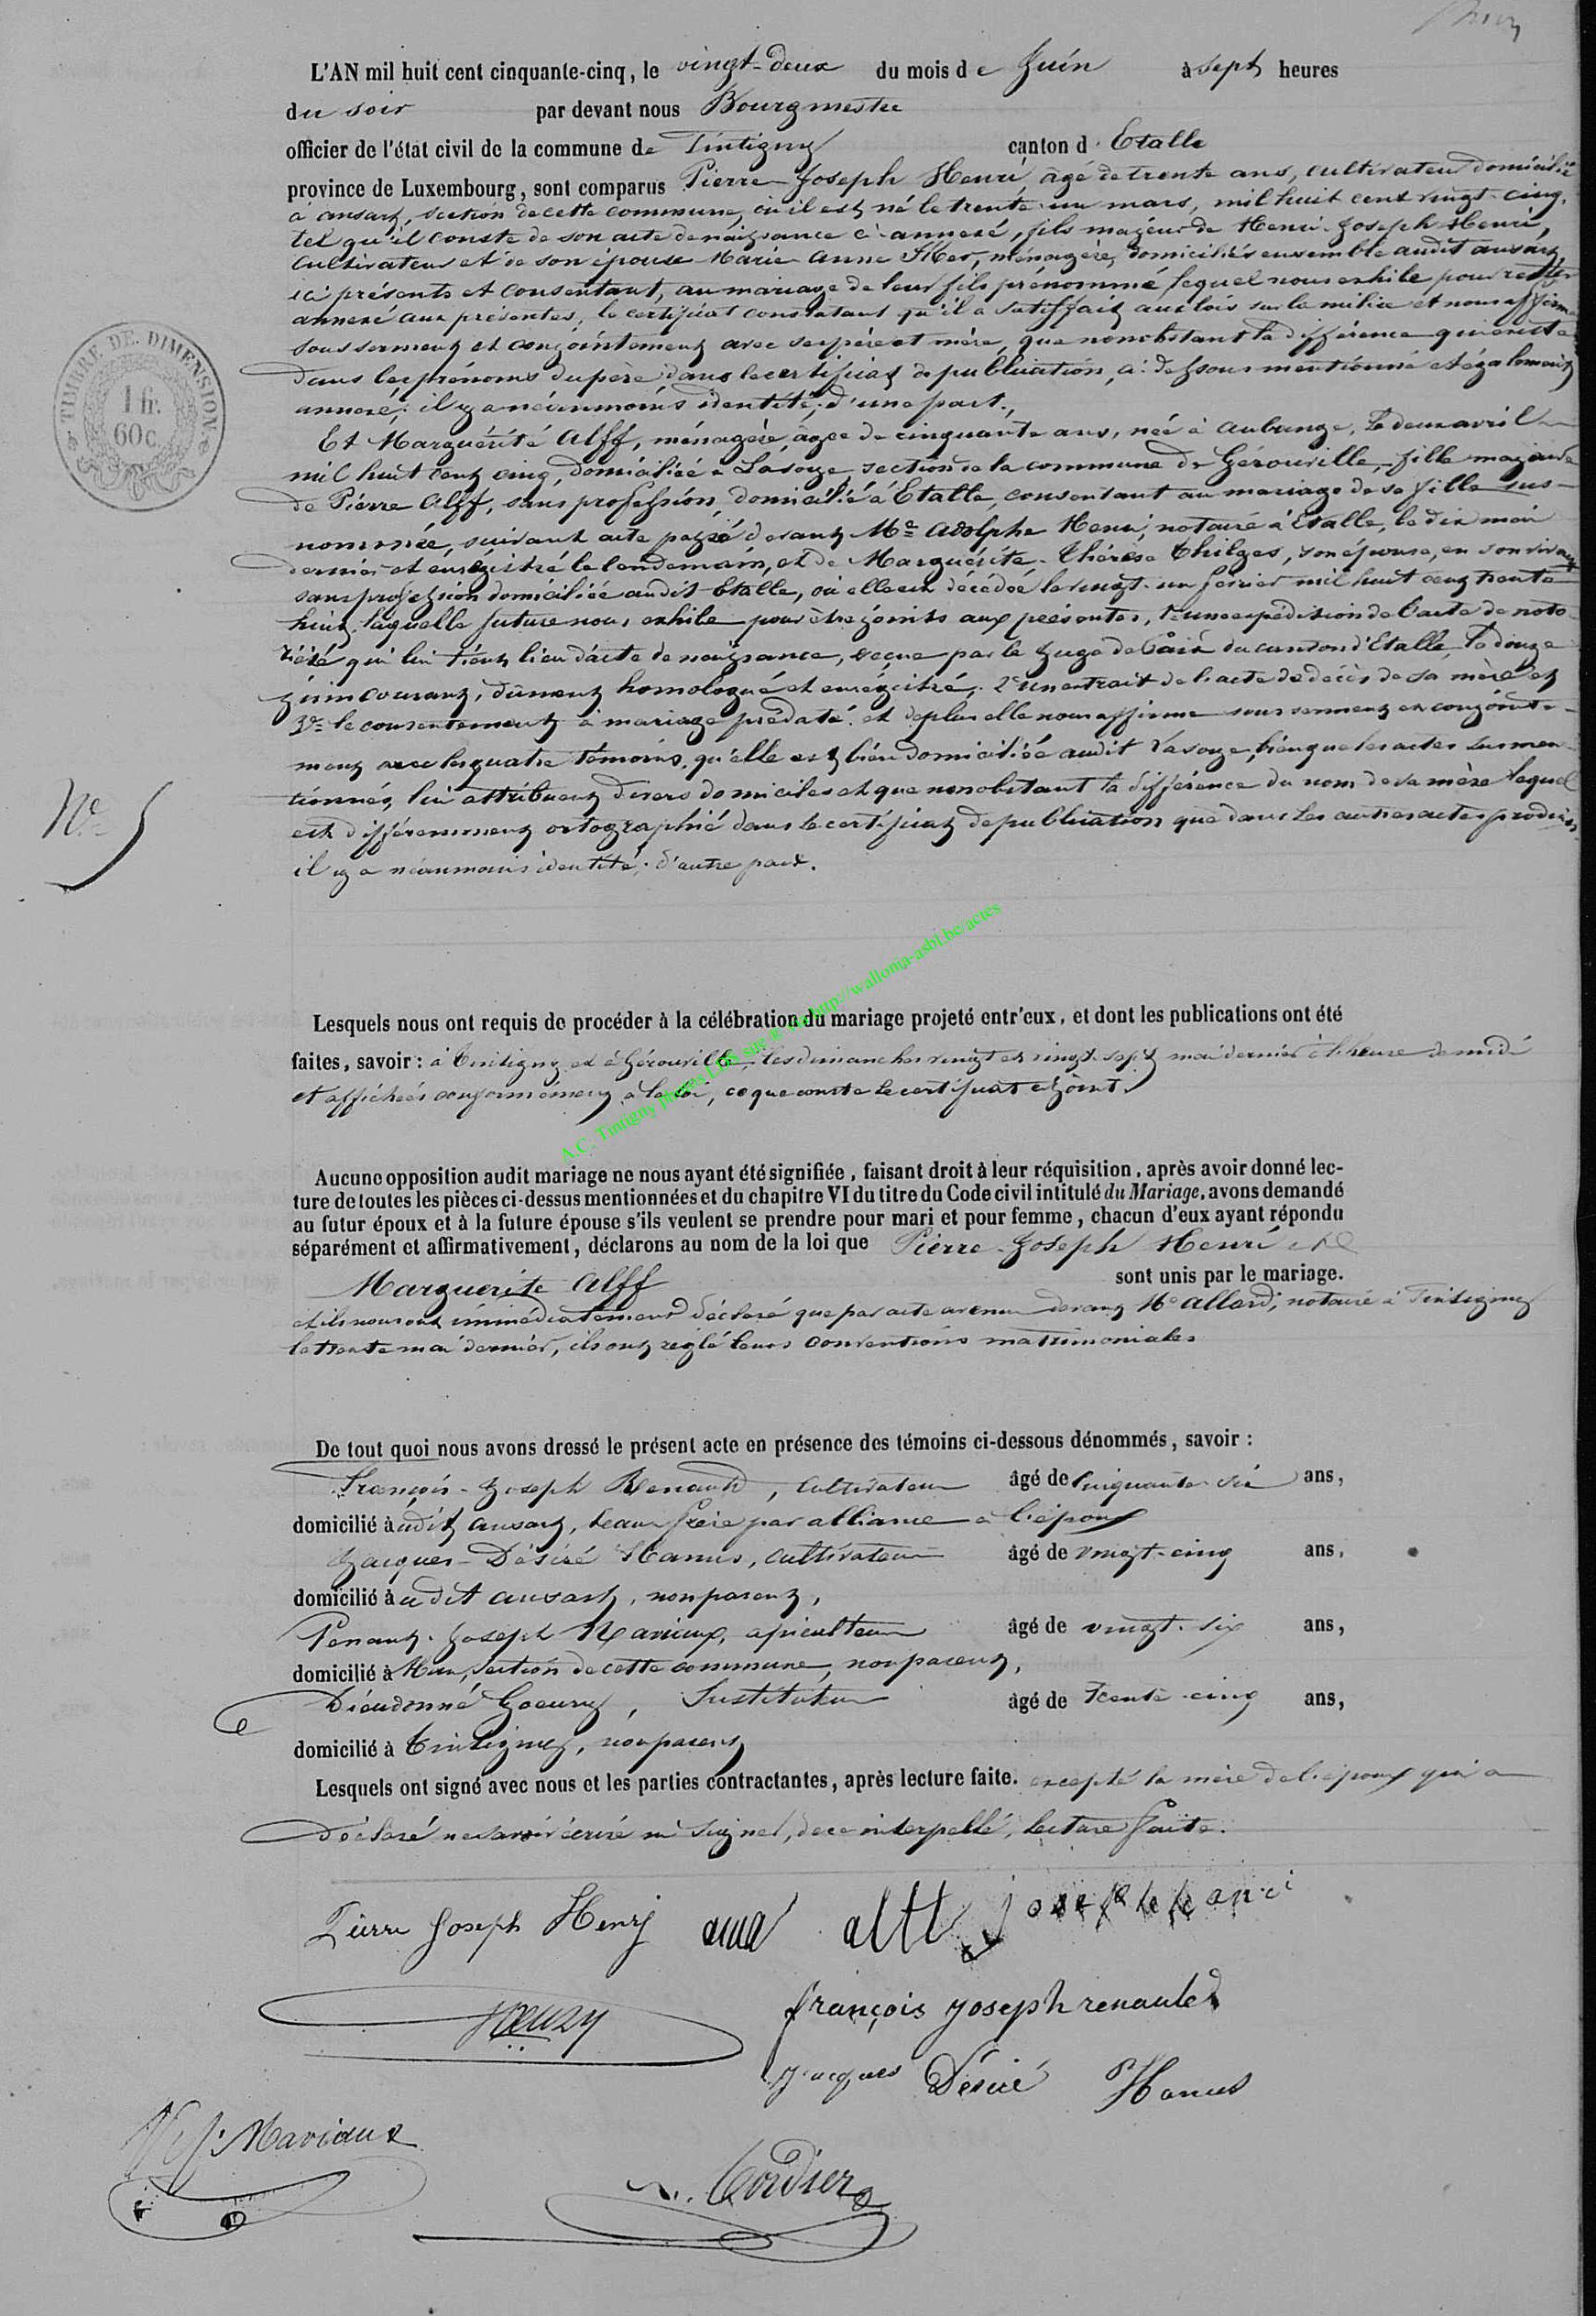 L'AN mil huit cent cinquante-cinq, le vingt-deux du mois de Juin à sept heures
du soir par devant nous Bourgmestre
officier de l'état civil de la commune de Tintigny canton d'Etalle
province de Luxembourg, sont comparus Pierre-Joseph Henri, âgé de trente ans, cultivateur domicilié
à ansart, section de cette commune, où il est né le trente un mars, mil huit cent vingt-cinq,
tel qu'il conste de son acte de naissance ci-annexé, fils majeur de Henri-Joseph Henri,
cultivateur et de son épouse Marie-Anne ménagère, domiciliés ensemble audit ansart
ici présents et consentant, au mariage de leur fils prénommé lequel nous exhibe pour rester
annexé aux présentes, le certificat constatant qu'il a satisfait aux lois sur la milice et nous affirme
sous serment et conjointement avec ses père et mère, que nonobstant la différence qui existe
dans les prénoms du père dans le certificat de publication, ci-dessous mentionné et également
annexé, il y a néanmoins identité; d'une part.
Et Marguérite Alff, ménagère, âgée de cinquante ans, née à aubange, le deux avril
mil huit cent cinq, domiciliée à Lasoye section de la commune de Gérouville, fille majeure
de Pierre Alff, sans profession, domicilié à Etalle, consentant au mariage de sa fille sus-
nommée, suivant acte passé devant Me Adolphe Henri, notaire à Etalle, le dix mai
dernier et enrégistré le lendemain, et de Marguérite-Thérèse Thilges, son épouse, en son vivant
sans profession domiciliée audit Etalle, où elle est décédée le vingt-un février mil huit cent trente
huit, laquelle future nous exhibe pour être joints aux présentes, 1° une expédition de l'acte de noto-
riété qui lui tient lieu d'acte de naissance, reçue par le Juge de Paix du canton d'Etalle, le douze
juin courant, dûment homologué et enrégistré; 2° un extrait de l'acte de décès de sa mère et
3° le consentement à mariage prédaté. et de plus elle nous affirme sous serment et conjointe-
ment avec les quatre témoins, qu'elle est bien domiciliée audit Lasoye, bien que les actes susmen-
tionnés lui attribuent divers domiciles et que nonobstant la différence du nom de sa mère lequel
est différemment ortographié dans le certificat de publication que dans les autres actes produits,
il y a néanmoins identité; d'autre part.
TIMBRE DE DIMENSION
1 fr.
60 c.
N° 5
Lesquels nous ont requis de procéder à la célébration du mariage projeté entr'eux, et dont les publications ont été
faites, savoir: à Tintigny et à Gérouville, les dimanches vingt et vingt-sept mai dernier à l'heure de midi
et affichées conformément à la loi, ce que conste le certificat ci-joint.
A.C. Tintigny photos LDS sur http://wallonia-asbl.be/actes
Aucune opposition audit mariage ne nous ayant été signifiée, faisant droit à leur réquisition, après avoir donné lec-
ture de toutes les pièces ci-dessus mentionnées et du chapitre VI du titre du Code civil intitulé du Mariage, avons demandé
au futur époux et à la future épouse s'ils veulent se prendre pour mari et pour femme, chacun d'eux ayant répondu
séparément et affirmativement, déclarons au nom de la loi que Pierre-Joseph Henri et
Marguerite Alff sont unis par le mariage.
et ils nous ont immédiatement déclaré que par acte avenu devant Me Allard, notaire à Tintigny
le trente mai dernier, ils ont réglé leurs conventions matrimoniales
De tout quoi nous avons dressé le présent acte en présence des témoins ci-dessous dénommés, savoir:
François-Joseph Renauld, cultivateur âgé de cinquante-six ans,
domicilié audit ansart, beau-frère par alliance à l'époux
Jacques-Désiré Hanus, cultivateur âgé de vingt-cinq ans,
domicilié audit ansart, non parent,
Joseph Maviaux, apiculteur âgé de vingt-six ans,
domicilié à section de cette commune, non parent,
Dieudonné Goeury, Instituteur âgé de trente-cinq ans,
domicilié à Tintigny, non parent
Lesquels ont signé avec nous et les parties contractantes, après lecture faite. excepté la mère de l'époux qui a
déclaré ne savoir écrire ni signer, de ce interpellé, lecture faite.
Pierre Joseph Henry alff joseph henri
Goeury françois joseph renauld
jacques Désiré Hanus
Maviaux
Cordier